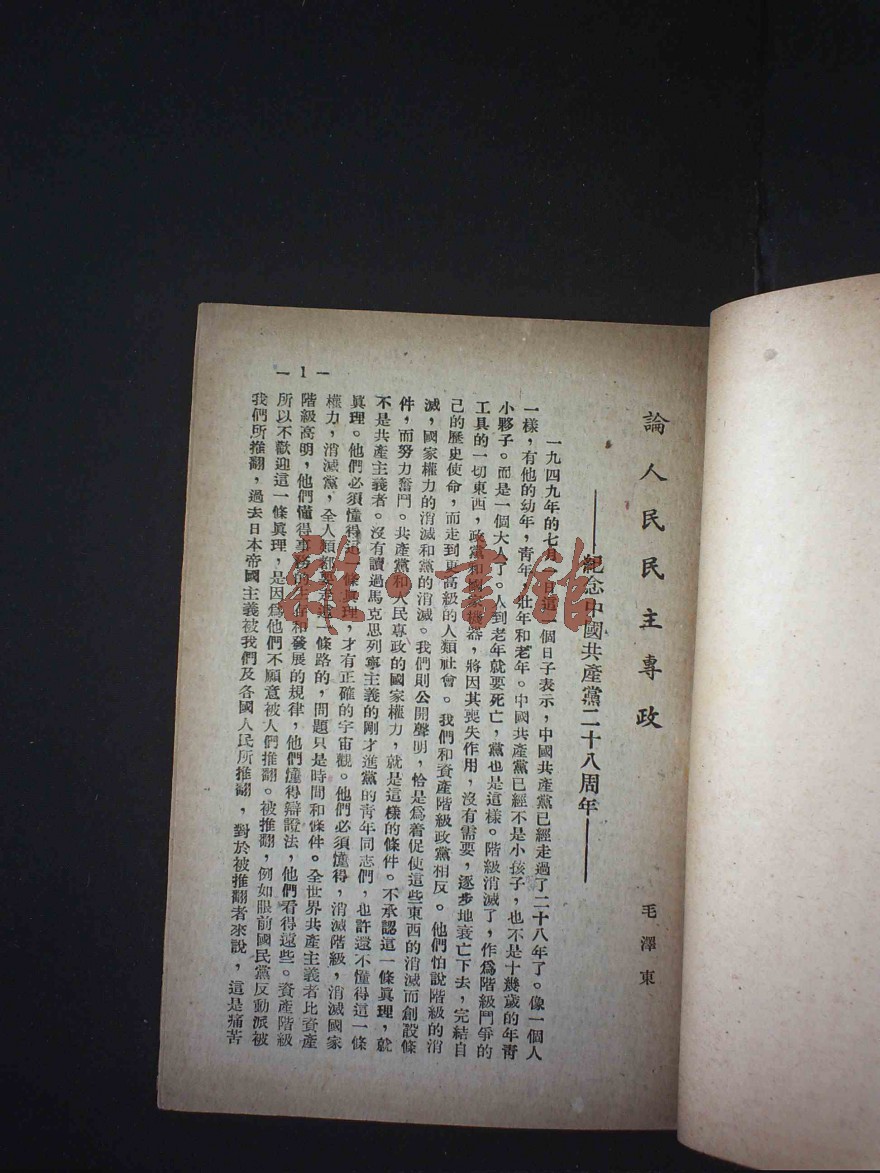 論人民民主專政
毛澤東
——紀念中國共產黨二十八周年——
一九四九年的七月一日這一個日子表示，中國共產黨已經走過了二十八年了。像一個人
一樣，有他的幼年，青年，壯年和老年。中國共產黨已經不是小孩子，也不是十幾歲的年青
小夥子。而是一個大人了。人到老年就要死亡，黨也是這樣。階級消滅了，作爲階級鬥爭的
工具的一切東西，政黨和國家機器，將因其喪失作用，沒有需要，逐步地衰亡下去，完結自
己的歷史使命，而走到更高級的人類社會。我們和資產階級政黨相反。他們怕說階級的消
滅，國家權力的消滅和黨的消滅。我們則公開聲明，恰是爲着促使這些東西的消滅而創設條
件，而努力奮鬥。共產黨和人民專政的國家權力，就是這樣的條件。不承認這一條眞理，就
不是共產主義者。沒有讀過馬克思列寧主義的剛才進黨的青年同志們，也許還不懂得這一條
眞理。他們必須懂得這一條眞理，才有正確的宇宙觀。他們必須懂得，消滅階級，消滅國家
權力，消滅黨，全人類都要走這一條路的，問題只是時間和條件。全世界共產主義者比資產
階級高明，他們懂得事物的生存和發展的規律，他們懂得辯證法，他們看得遠些。資產階級
所以不歡迎這一條眞理，是因爲他們不願意被人們推翻。被推翻，例如眼前國民黨反動派被
我們所推翻，過去日本帝國主義被我們及各國人民所推翻，對於被推翻者來說，這是痛苦
— 1 —